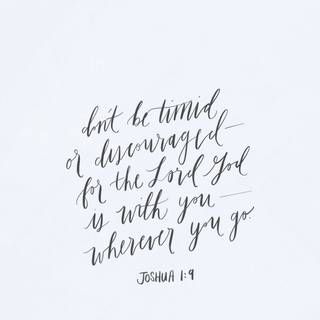 don't be timid
or discouraged—
for the Lord God
is with you —
wherever you go.
JOSHUA 1:9